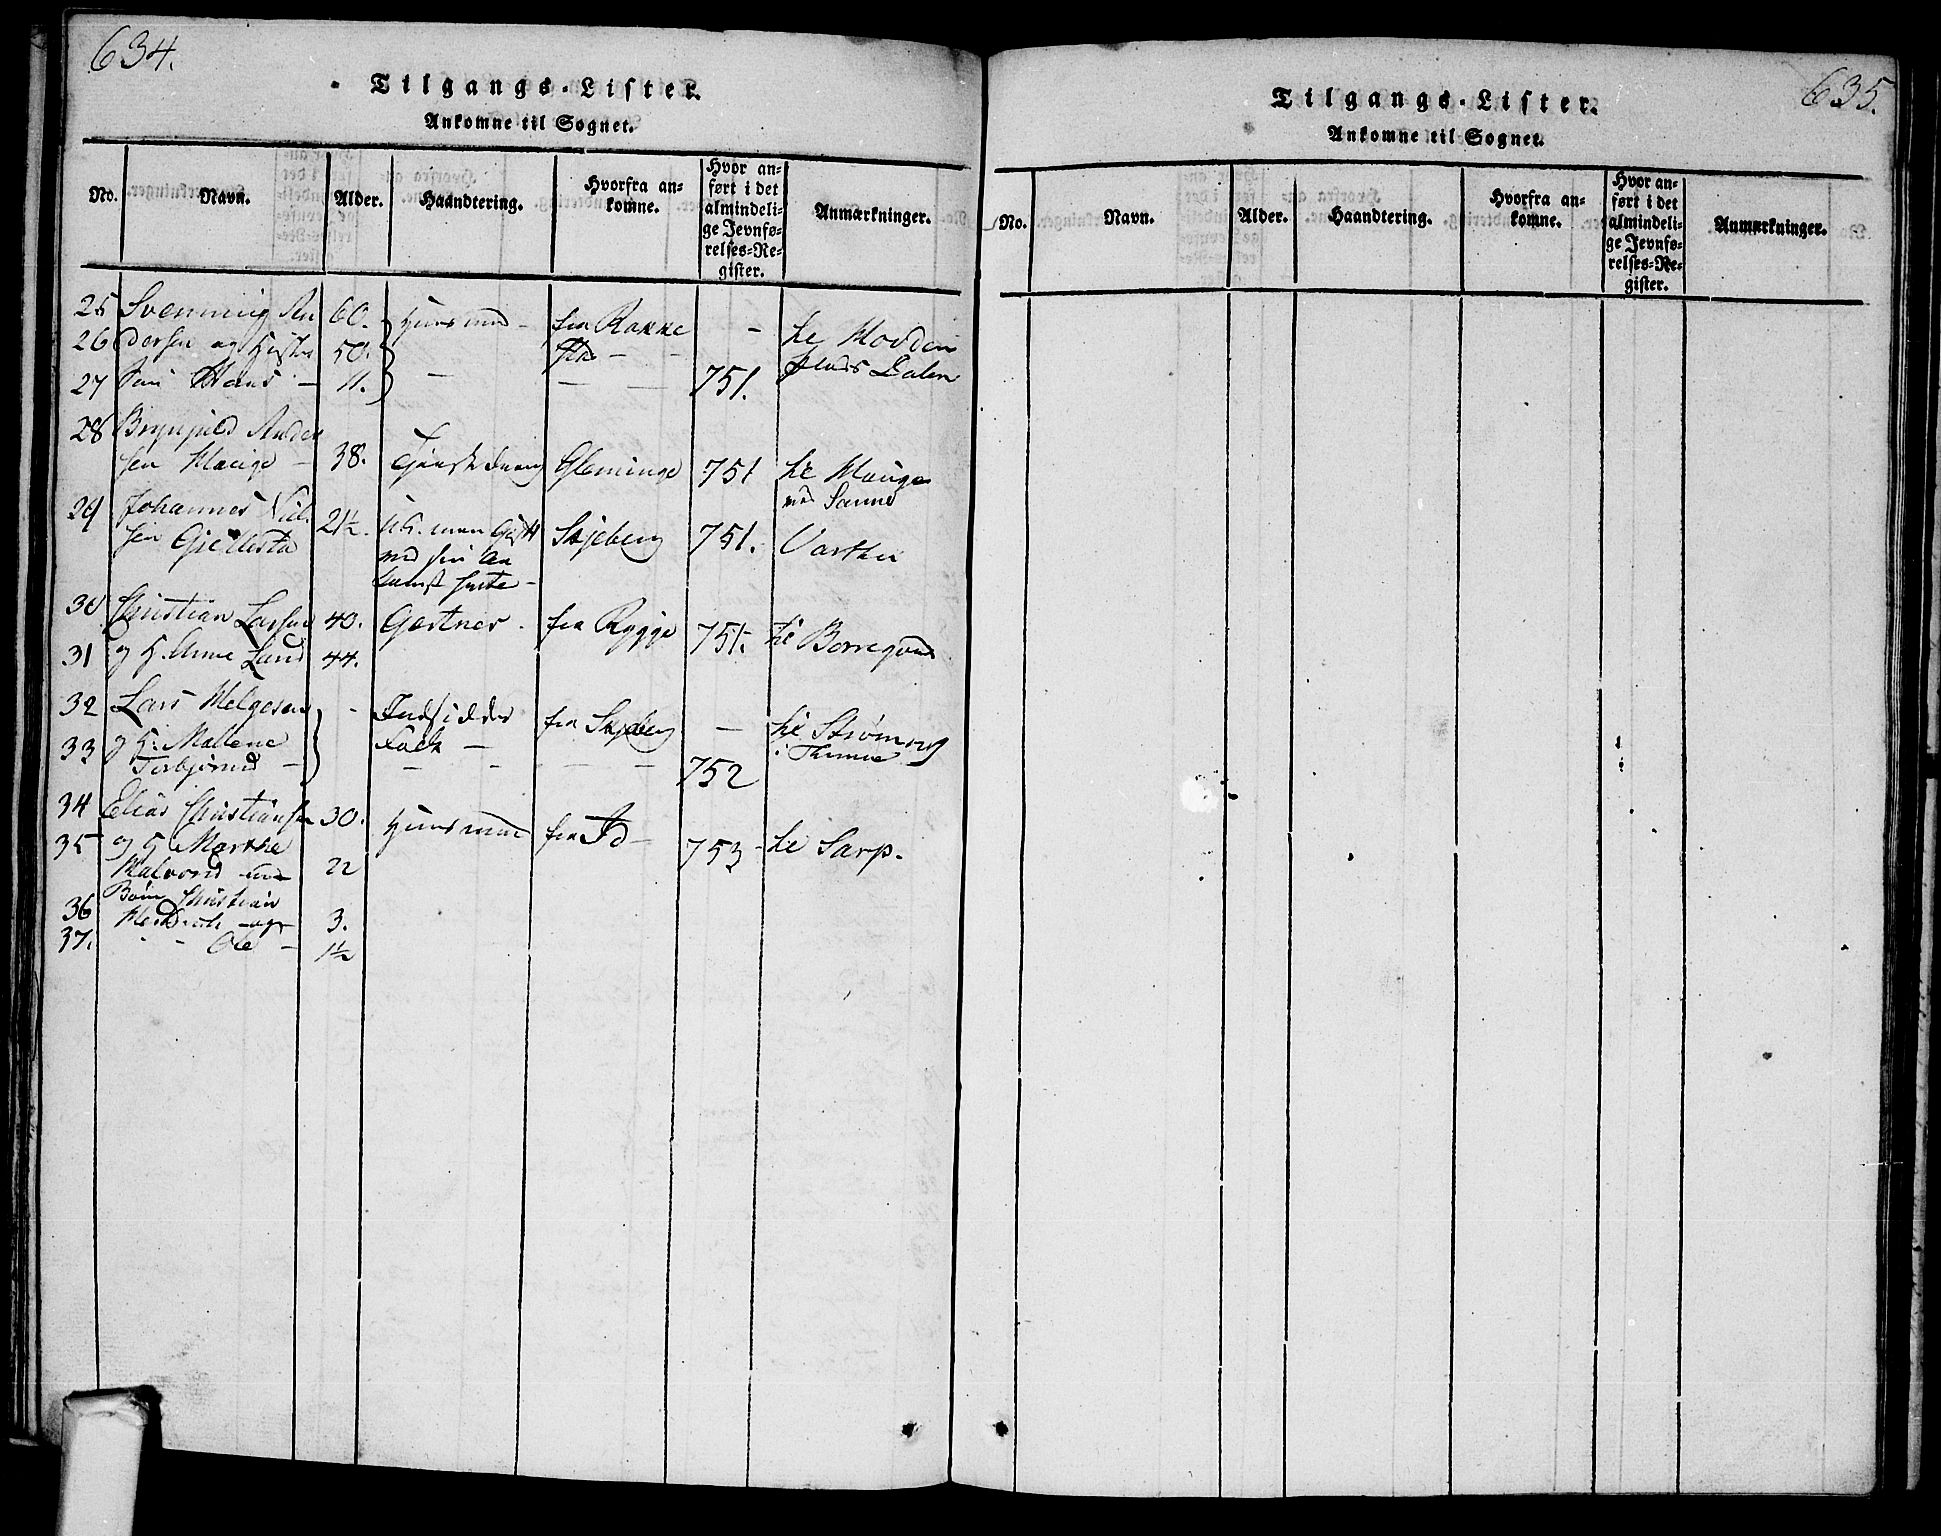 634.
Tilgangs-Lister.
Ankomne til Sognet.
No. Navn. Alder. Haandtering. Hvorfra an-komne. Hvor an-ført i det almindeli-ge Jevnfø-relses-Re-gister. Anmærkninger.
25 Svenning An 60. Huusmd - fra Rakke - til
26 dersen og 50. sta - - Plads Dalen
27 Søn Hans - 11. - - - 751.
28 Brynjuld Ander
sen Hauge - 38. Glemminge 751 til Hauge
29 Johannes Niel 21½. Skjeberg 751. Varteig
sen med sin
30 Christian Larsen 40. Gartner. fra Rygge 751. til Borregaard
31 og H. Anne Lund 44.
32 Lars Helgesen - Indsidder fra Skjeberg - til
33 og H. Mallene Folk - i Thune
Torbjørnsd - - - - - 752
34 Elias Christiansen 30. Huusmand fra Id - 753 - til Sarp.
35 og H. Marthe
Halvorsd 22
36 Børn Christian
og 3.
37. - - Ole - 1½
635.
Tilgangs-Lister.
Ankomne til Sognet.
No. Navn. Alder. Haandtering. Hvorfra an-komne. Hvor an-ført i det almindeli-ge Jevnfø-relses-Re-gister. Anmærkninger.